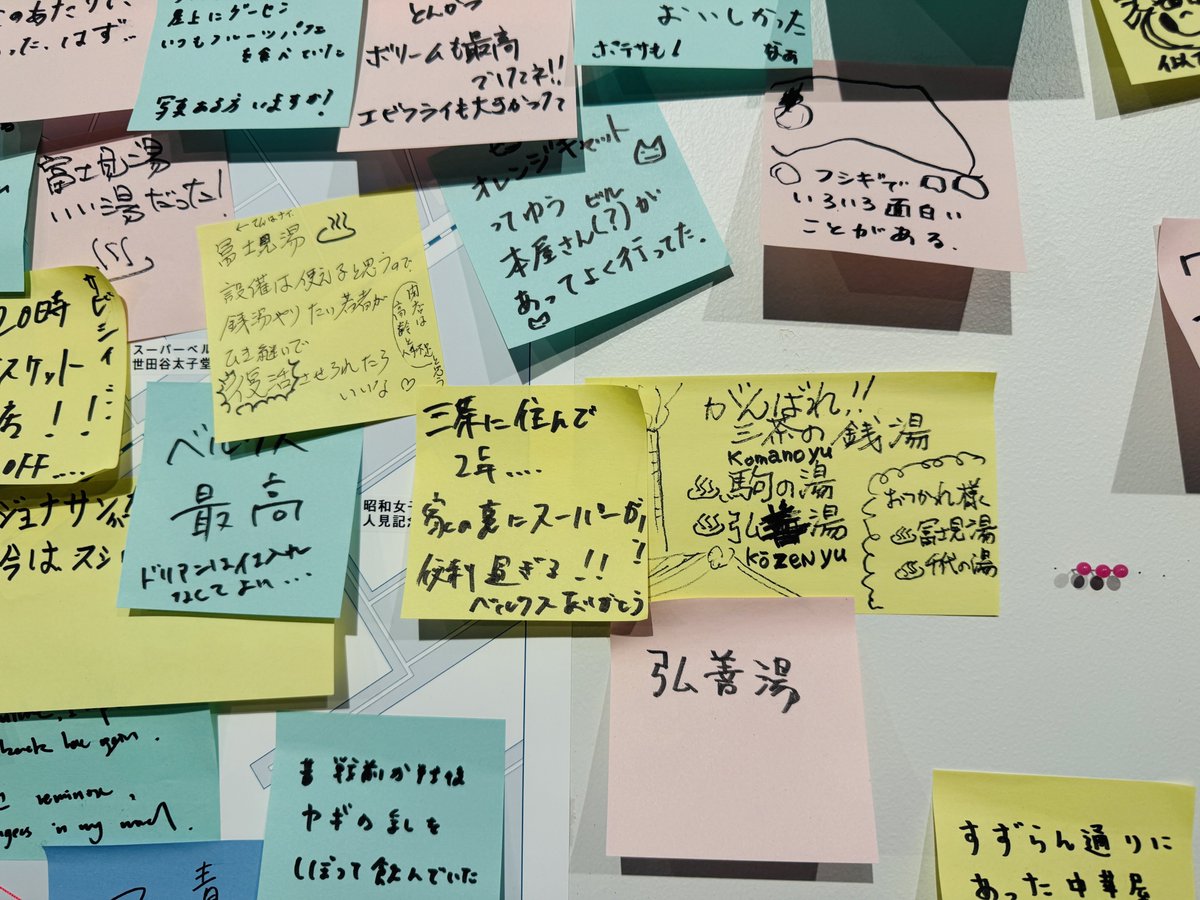 のあたりで、
った、はず…
屋上にゲーセン
いつもフルーツパフェ
を食べていた
写真ある方いますか?
とんかつ
ボリュームも最高
でしてネ!!
エビフライも大きかって
おいしかった
なぁ
ポテサも!
似て
富士見湯
いい湯だった!
←でんはナイ、
富士見湯
設備は使えると思うので
銭湯やりたい若者が
ひき継いで
復活させられたら
いいな♡
オレンジキャット
ってゆうビル
本屋さん(?)が
あってよく行ってた。
フシギで
いろいろ面白い
ことがある.
20時
サビシイ
スケット
店!!
OFF....
スーパーベル
世田谷太子堂
ベルクス
最高
ドリアンは仕入れ
なくてよい...
昭和女子
人見記念
三茶に住んで
2年....
家の裏にスーパーが!
便利過ぎる!!
ベルクスありがとう
がんばれ!!
三茶の銭湯
Komanoyu
♨駒の湯
♨弘善湯
Kōzenyu
おつかれ様
♨富士見湯
♨千代の湯
ジョナサンが
今はスシ
弘善湯
back
again.
in my
昔戦前か
ヤギの乳を
しぼって飲んでいた
青
すずらん通りに
あった中華屋